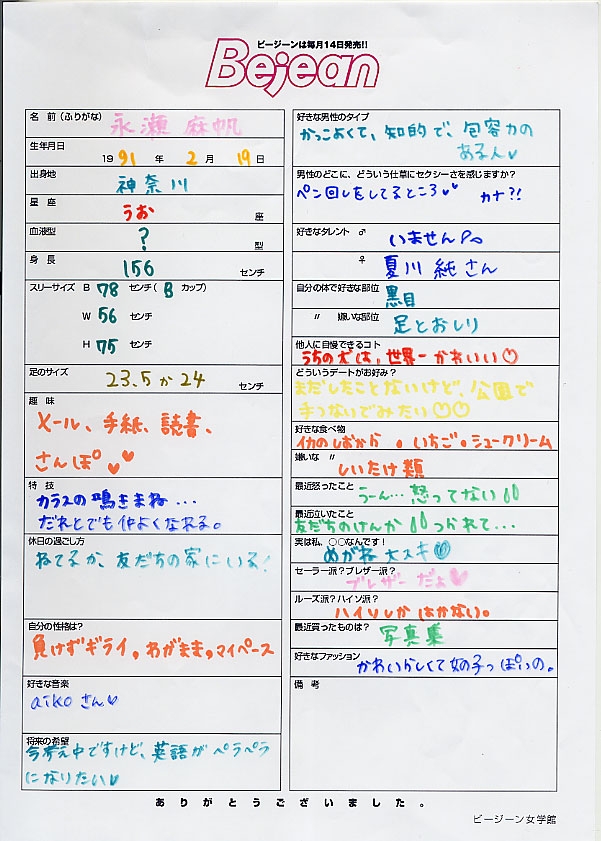 ビージーンは毎月14日発売!!
Bejean
名 前(ふりがな) 永瀬 麻帆
生年月日
1991年 2月 19日
出身地 神奈川
星 座 うお 座
血液型 ? 型
身 長 156 センチ
スリーサイズ B 78 センチ( B カップ)
W 56 センチ
H 75 センチ
足のサイズ 23.5か24 センチ
趣 味
メール、手紙、読書、
さんぽ♥♥
特 技
カラスの鳴きまね…
だれとでも仲よくなれる。
休日の過ごし方
ねてるか、友だちの家にいる!
自分の性格は?
負けずギライ,わがまま,マイペース
好きな音楽
aikoさん♡
将来の希望
今考え中ですけど、英語がペラペラ
になりたい♥
好きな男性のタイプ
かっこよくて、知的で、包容力の
ある人♥
男性のどこに、どういう仕草にセクシーさを感じますか?
ペン回しをしてるところ♥♥ カナ?!
好きなタレント ♂ いません
♀ 夏川 純さん
自分の体で好きな部位 黒目
〃 嫌いな部位 足とおしり
他人に自慢できるコト
うちの犬は、世界一かわいい♡
どういうデートがお好み?
まだしたことないけど、公園で
手つないでみたい♡♡
好きな食べ物
イカのしおから。いちご。シュークリーム
嫌いな 〃 しいたけ類
最近怒ったこと うーん…怒ってない
最近泣いたこと
友だちのけんか つられて…
実は私、○○なんです! めがね大スキ♥
セーラー派?ブレザー派?
ブレザーだよ♥
ルーズ派?ハイソ派?
ハイソしかはかない。
最近買ったものは? 写真集
好きなファッション
かわいらしくて女の子っぽいの。
備 考
ありがとうございました。
ビージーン女学館